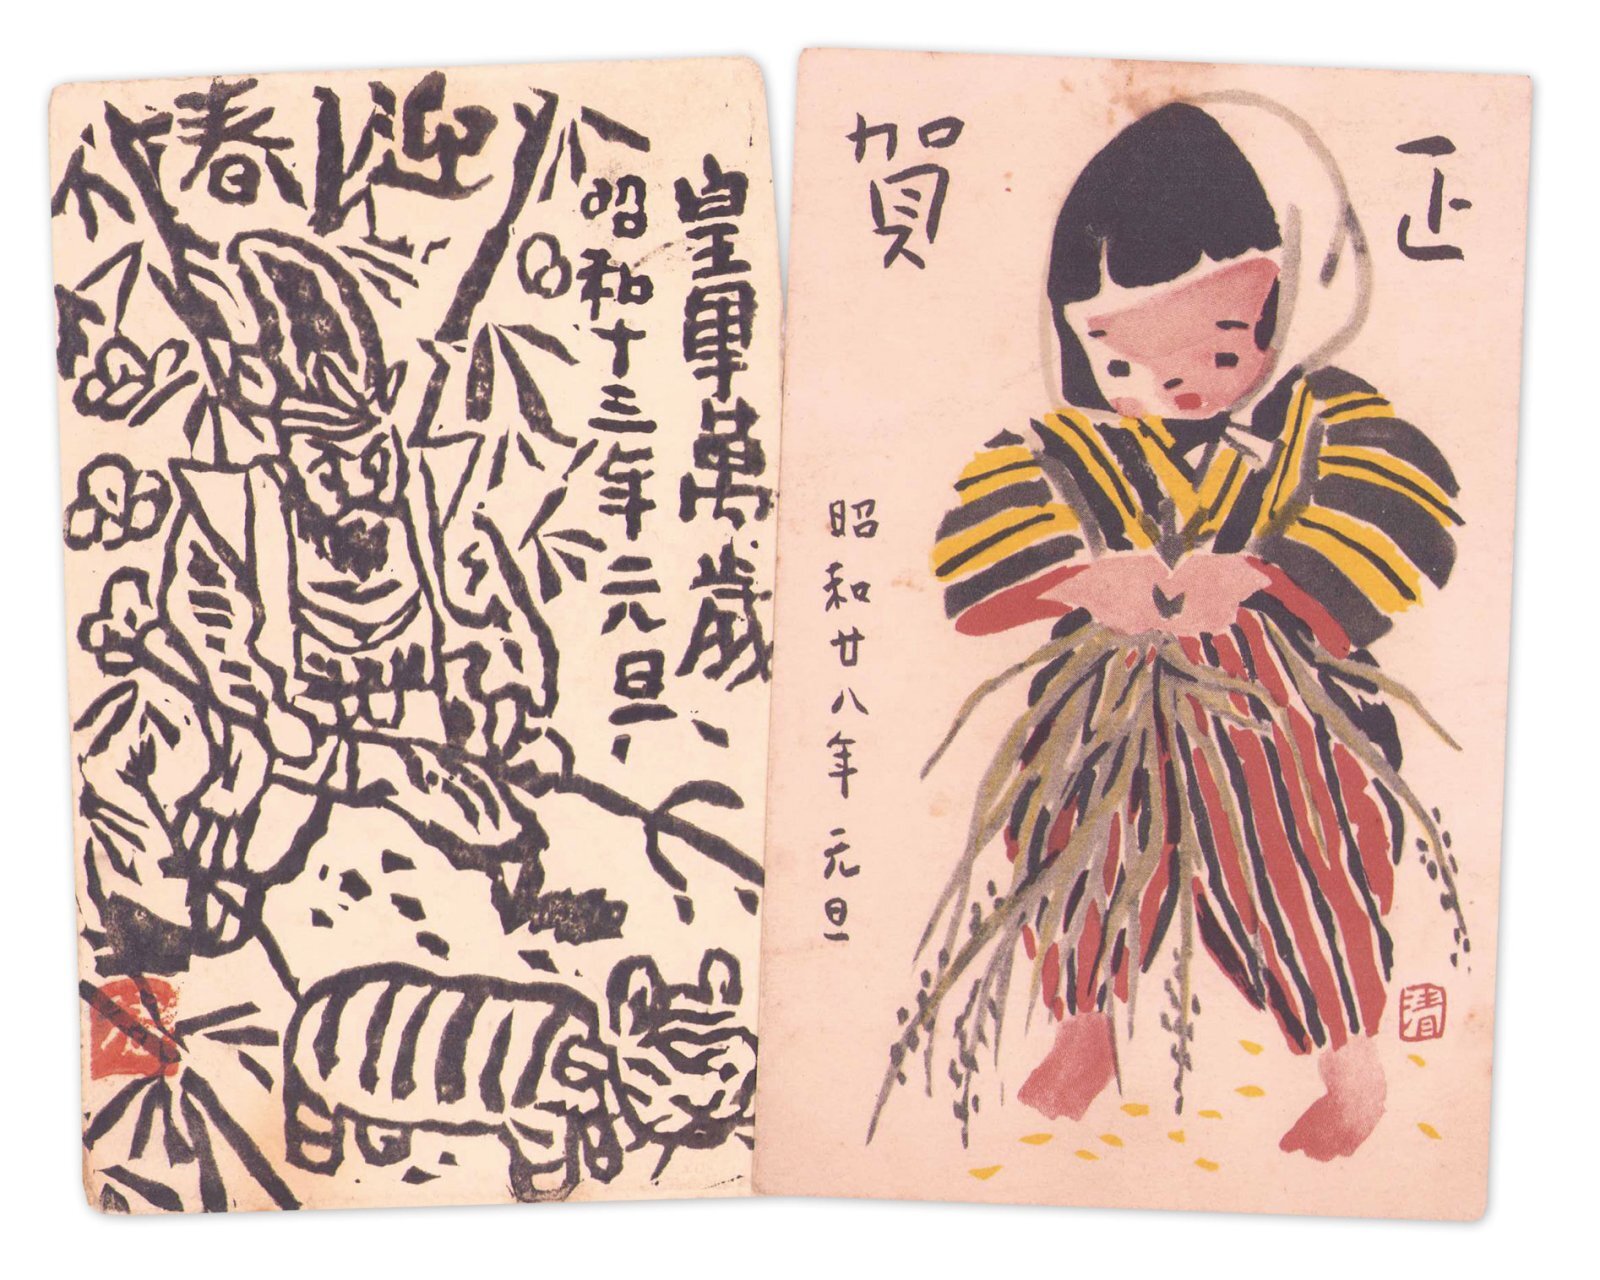 迎春
皇軍萬歳
昭和十三年元旦
賀正
昭和廿八年元旦
清